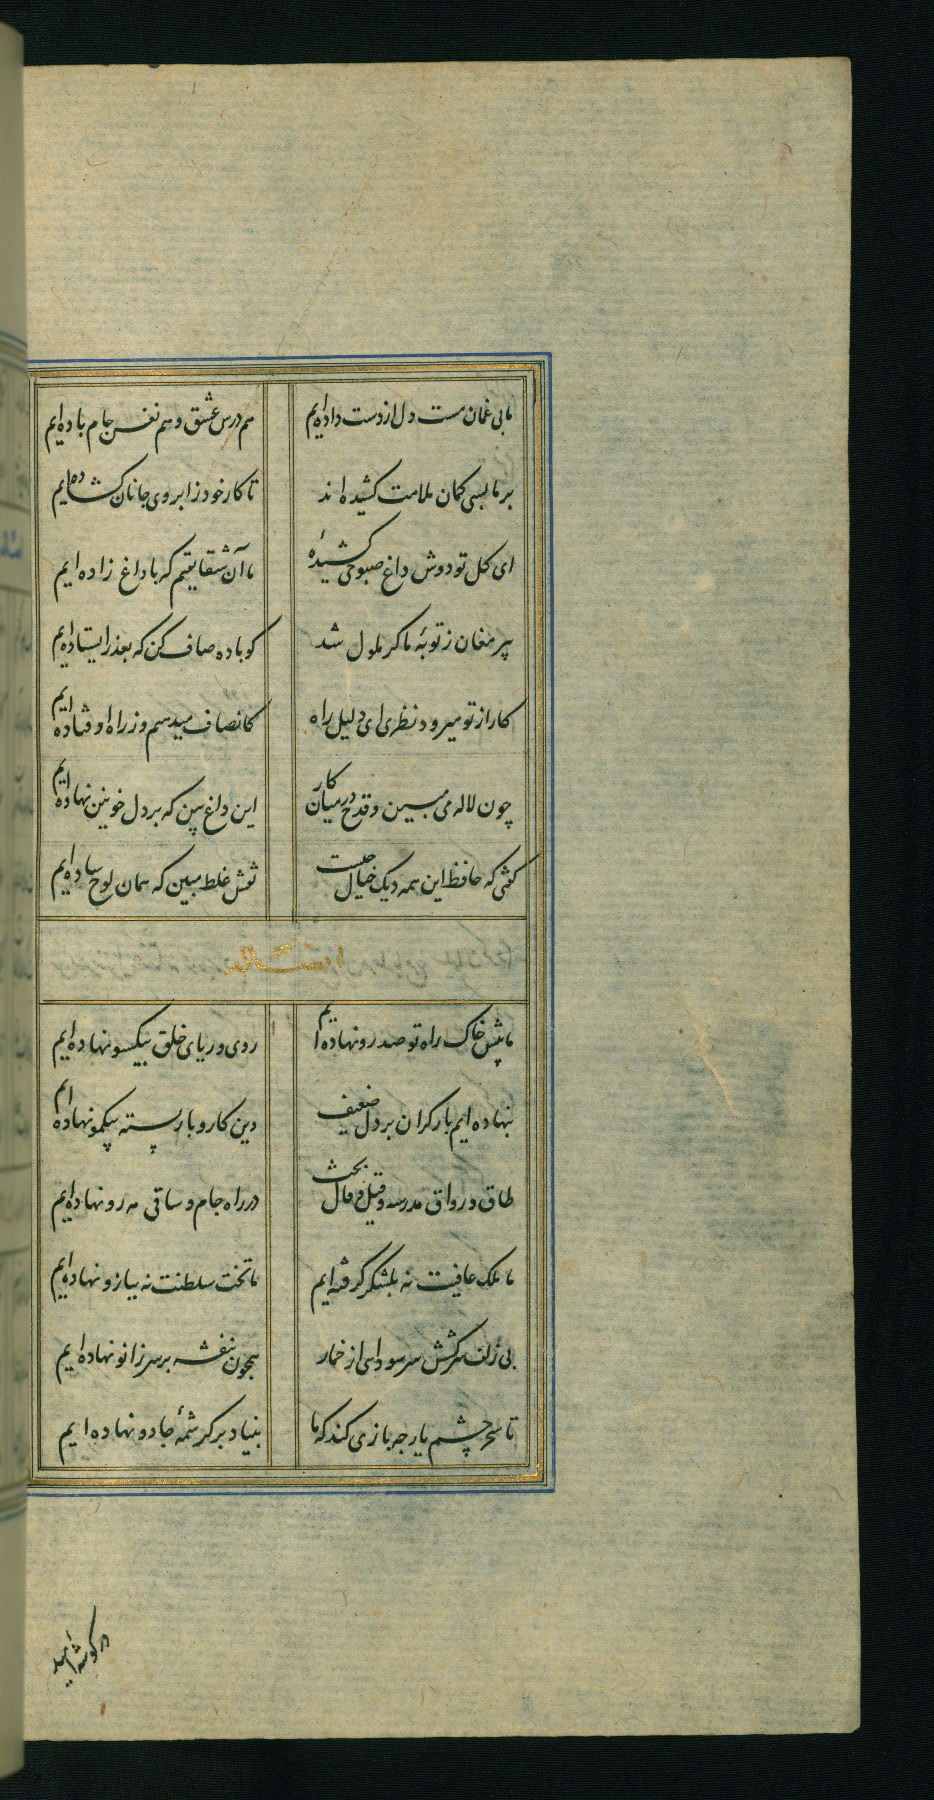 ما بی غمان مست دل از دست داده ایم هم درس عشق و هم نفس جام باده ایم
بر ما بسی کمان ملامت کشیده اند تا کار خود ز ابروی جانان کشاده ایم
ای کل تو دوش داغ صبوحی کشیدهٔ ما آن شقایقیم که با داغ زاده ایم
پیر مغان ز توبهٔ ما کر ملول شد کو باده صاف کن که بعذر ایستاده ایم
کار از تو میرود نظری ای دلیل راه کانصاف میدهیم و ز راه اوفتاده ایم
چون لاله می مبین و قدح در میان کار این داغ بین که بر دل خونین نهاده ایم
کفتی که حافظ این همه دیک خیال چیست نقش غلط مبین که همان لوح ساده ایم
ما پیش خاک راه تو صد رو نهاده ایم روی و ریای خلق بیکسو نهاده ایم
بنهاده ایم بار کران بر دل ضعیف وین کار و بار بسته بیکمو نهاده ایم
طاق و رواق مدرسه و قیل و قال بحث در راه جام و ساقی مه رو نهاده ایم
ما ملک عافیت نه بلشکر کرفته ایم ما تخت سلطنت نه ببازو نهاده ایم
بی زلف سرکشش سر سودایی از خمار همچون بنفشه بر سر زانو نهاده ایم
تا سحر چشم یار چه بازی کند که ما بنیاد بر کرشمهٔ جادو نهاده ایم
در کوشهٔ امید